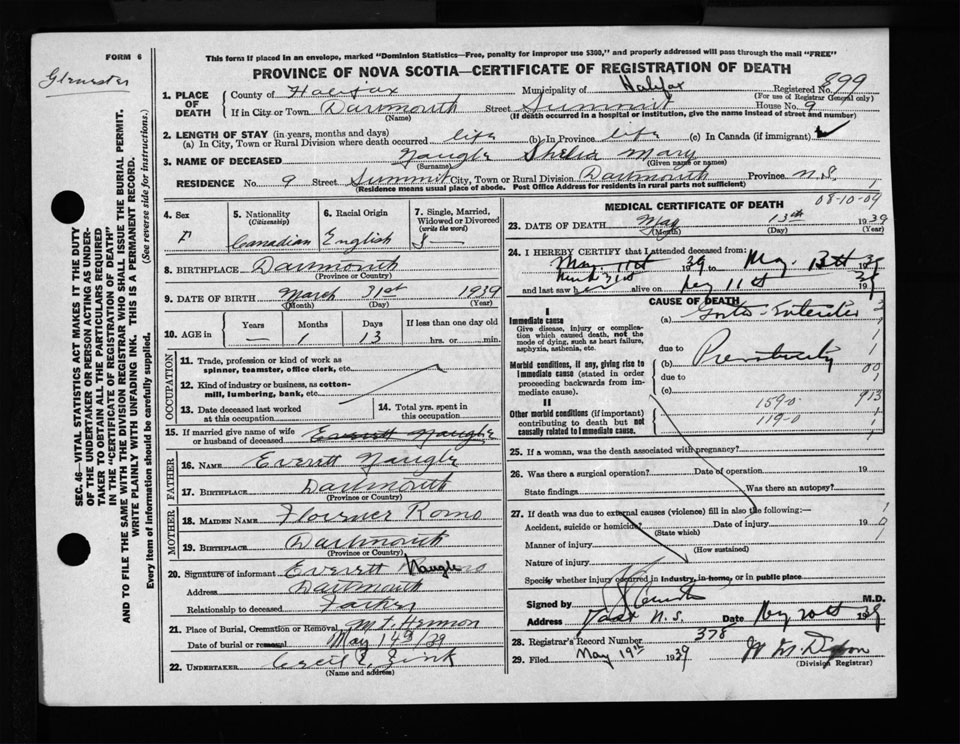 FORM 6
This form if placed in an envelope, marked "Dominion Statistics—Free, penalty for improper use $300," and properly addressed will pass through the mail "FREE"
PROVINCE OF NOVA SCOTIA—CERTIFICATE OF REGISTRATION OF DEATH
1. PLACE OF DEATH
County of Halifax Municipality of Halifax Registered No. 899
(For use of Registrar General only)
If in City or Town Dartmouth Street Summit House No. 9
(Name) (If death occurred in a hospital or institution, give the name instead of street and number)
2. LENGTH OF STAY (in years, months and days)
(a) In City, Town or Rural Division where death occurred life (b) In Province life (c) In Canada (if immigrant)
3. NAME OF DECEASED Naugle Shelia Mary
(Surname) (Given name or names)
RESIDENCE No. 9 Street Summit City, Town or Rural Division Dartmouth Province N.S.
(Residence means usual place of abode. Post Office Address for residents in rural parts not sufficient)
4. Sex F
5. Nationality (Citizenship) Canadian
6. Racial Origin English
7. Single, Married, Widowed or Divorced (write the word) S
8. BIRTHPLACE Dartmouth
(Province or Country)
9. DATE OF BIRTH March 31st 1939
(Month) (Day) (Year)
10. AGE in Years — Months 1 Days 13 If less than one day old hrs. or min.
OCCUPATION
11. Trade, profession or kind of work as spinner, teamster, office clerk, etc.
12. Kind of industry or business, as cotton-mill, lumbering, bank, etc.
13. Date deceased last worked at this occupation
14. Total yrs. spent in this occupation
15. If married give name of wife or husband of deceased Everett Naugle
FATHER
16. NAME Everett Naugle
17. BIRTHPLACE Dartmouth
(Province or Country)
MOTHER
18. MAIDEN NAME Romo
19. BIRTHPLACE Dartmouth
(Province or Country)
20. Signature of informant Everett Naugle
Address Dartmouth
Relationship to deceased Father
21. Place of Burial, Cremation or Removal Mt. Hermon
Date of burial or removal May 14th/39
22. UNDERTAKER Cecil E. Zink
(Name and address)
MEDICAL CERTIFICATE OF DEATH
08-10-09
23. DATE OF DEATH May 13th 1939
(Month) (Day) (Year)
24. I HEREBY CERTIFY that I attended deceased from:
1939 to May 13th 1939
and last saw alive on May 11th 1939
CAUSE OF DEATH
I
Immediate cause
Give disease, injury or complication which caused death, not the mode of dying, such as heart failure, asphyxia, asthenia, etc.
(a) Gastro-Enteritis
due to
Morbid conditions, if any, giving rise to immediate cause (stated in order proceeding backwards from immediate cause).
(b) Prematurity
due to
(c)
II
Other morbid conditions (if important) contributing to death but not causally related to immediate cause.
159-0
119-0
25. If a woman, was the death associated with pregnancy?
26. Was there a surgical operation? Date of operation 19
State findings Was there an autopsy?
27. If death was due to external causes (violence) fill in also the following:—
Accident, suicide or homicide? Date of injury 19
(State which)
Manner of injury
(How sustained)
Nature of injury
Specify whether injury occurred in industry, in home, or in public place
Signed by M.D.
Address N.S. Date May 20th 1939
28. Registrar's Record Number 378
29. Filed May 19th 1939
(Division Registrar)
SEC. 46—VITAL STATISTICS ACT MAKES IT THE DUTY OF THE UNDERTAKER OR PERSON ACTING AS UNDERTAKER TO OBTAIN ALL THE PARTICULARS REQUIRED IN THE "CERTIFICATE OF REGISTRATION OF DEATH" AND TO FILE THE SAME WITH THE DIVISION REGISTRAR WHO SHALL ISSUE THE BURIAL PERMIT.
WRITE PLAINLY WITH UNFADING INK. THIS IS A PERMANENT RECORD.
Every item of information should be carefully supplied. (See reverse side for instructions.)